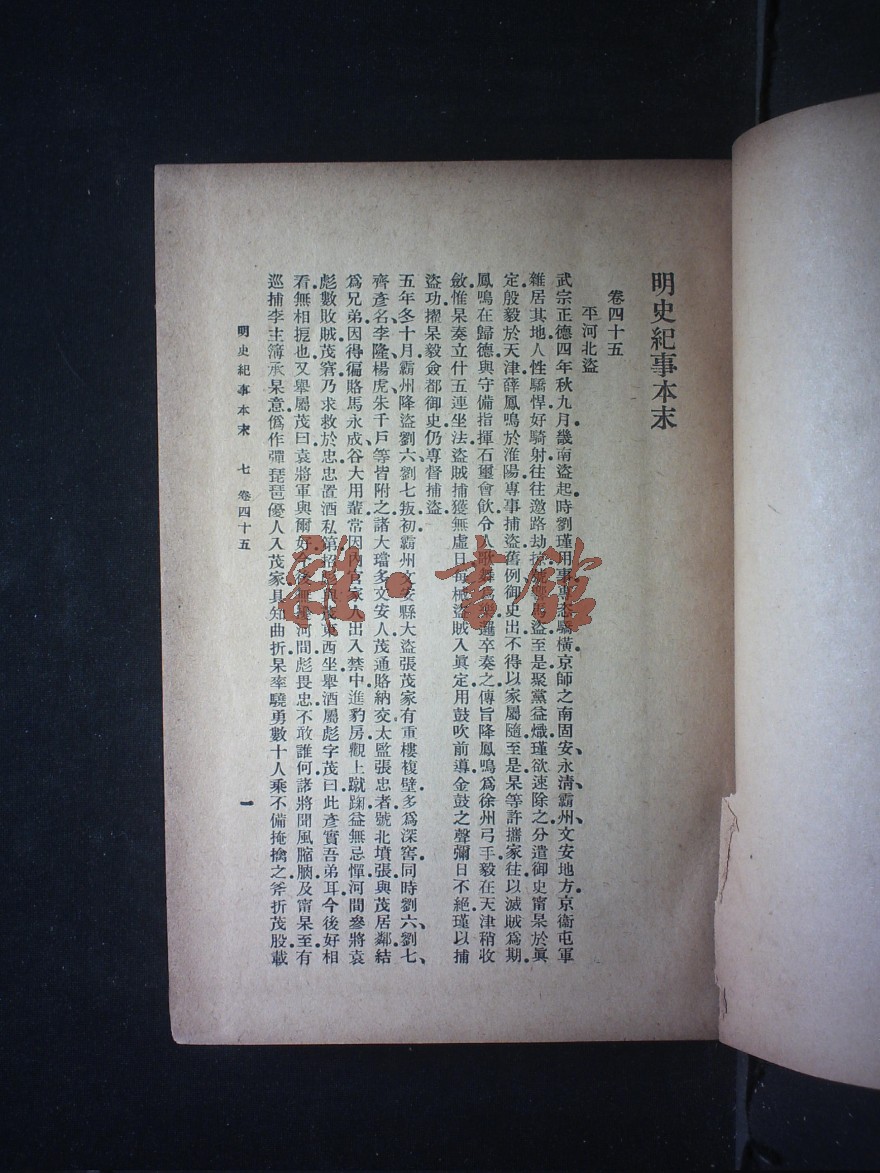 明史紀事本末
卷四十五
平河北盜
武宗正德四年秋九月畿南盜起時劉瑾用事專恣驕橫京師之南固安、永淸、霸州、文安地方京衞屯軍
雜居其地人性驕悍好騎射往往邀路劫掠 盜至是聚黨益熾瑾欲速除之分遣御史甯杲於眞
定殷毅於天津薛鳳鳴於淮陽專事捕盜舊例御史出不得以家屬隨至是杲等許攜家往以滅賊爲期
鳳鳴在歸德與守備指揮石璽會飮令人歌舞 邏卒奏之傳旨降鳳鳴爲徐州弓手毅在天津稍收
斂惟杲奏立什五連坐法盜賊捕獲無虛日每械盜賊入眞定用鼓吹前導金鼓之聲彌日不絕瑾以捕
盜功擢杲毅僉都御史仍專督捕盜
五年冬十月霸州降盜劉六、劉七叛初霸州文安縣大盜張茂家有重樓複壁多爲深窖同時劉六、劉七、
齊彥名、李隆、楊虎、朱千戶等皆附之諸大璫多文安人茂通賂納交太監張忠者號北墳張與茂居鄰結
爲兄弟因得徧賂馬永成、谷大用輩常因內官家人出入禁中進豹房觀上蹴踘益無忌憚河間參將袁
彪數敗賊茂窘乃求救於忠忠置酒私第招 茂東西坐舉酒屬彪字茂曰此彥實吾弟耳今後好相
看無相扼也又舉屬茂曰袁將軍與爾好今後無擾河間彪畏忠不敢誰何諸將聞風縮朒及甯杲至有
巡捕李主簿承杲意僞作彈琵琶優人入茂家具知曲折杲率驍勇數十人乘不備掩擒之斧折茂股載
明史紀事本末 七 卷四十五
一
雜·書館